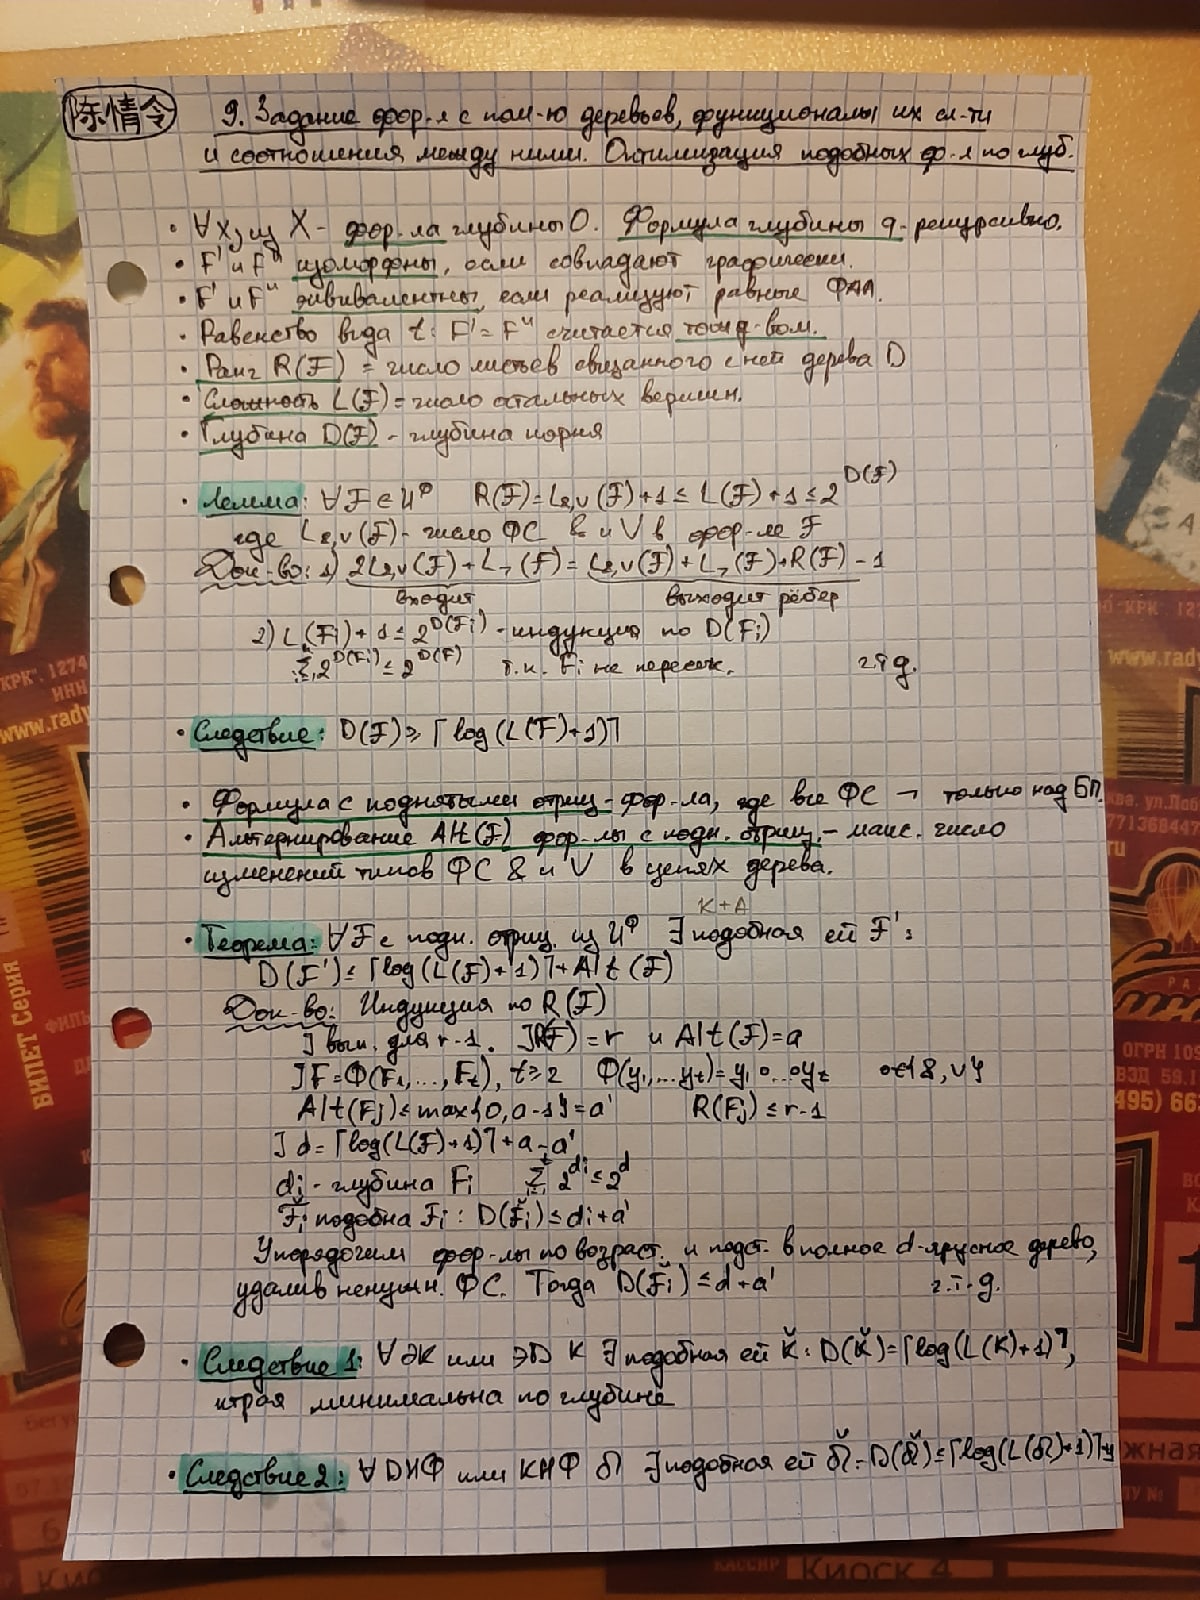 陈情令
9. Задание фор-л с пом-ю деревьев, функционалы их сл-ти
и соотношения между ними. Оптимизация подобных ф-л по глуб.
• ∀xj из X - фор-ла глубины 0. Формула глубины q - рекурсивно.
• F' и F'' изоморфны, если совпадают графически.
• F' и F'' эквивалентны, если реализуют равные ФАЛ.
• Равенство вида t: F' = F'' считается тожд-вом.
• Ранг R(F) = число листьев связанного с ней дерева D
• Сложность L(F) = число остальных вершин.
• Глубина D(F) - глубина корня
• Лемма: ∀F ∈ U^Ф R(F) = L&,∨(F)+1 ≤ L(F)+1 ≤ 2^D(F)
где L&,∨(F) - число ФС & и ∨ в фор-ле F
Док-во: 1) 2L&,∨(F) + L¬(F) = L&,∨(F) + L¬(F) + R(F) - 1
входит выходит рёбер
2) L(Fi)+1 ≤ 2^D(Fi) - индукция по D(Fi)
Σ 2^D(Fi) ≤ 2^D(F) т.к. Fi не пересек. ч.т.д.
• Следствие: D(F) ≥ ⌈log(L(F)+1)⌉
• Формула с поднятыми отриц - фор-ла, где все ФС ¬ только над БП.
• Альтернирование Alt(F) фор-лы с подн. отриц. - макс. число
изменений типов ФС & и ∨ в цепях дерева.
К + А
• Теорема: ∀F с подн. отриц. из U^Ф ∃ подобная ей F':
D(F') ≤ ⌈log(L(F)+1)⌉ + Alt(F)
Док-во: Индукция по R(F)
] вып. для r-1. ] R(F) = r и Alt(F) = a
] F = Φ(F1,...,Ft), t ≥ 2 Φ(y1,...yt) = y1 ∘...∘ yt ∘∈{&,∨}
Alt(Fj) ≤ max{0, a-1} = a' R(Fj) ≤ r-1
] d = ⌈log(L(F)+1)⌉ + a - a'
di - глубина Fi Σ 2^di ≤ 2^d
F̌i подобна Fi : D(F̌i) ≤ di + a'
Упорядочим фор-лы по возраст. и подст. в полное d-ярусное дерево,
удалив ненужн. ФС. Тогда D(F̌i) ≤ d + a' ч.т.д.
• Следствие 1: ∀ ЭК или ЭД K ∃ подобная ей Ǩ : D(Ǩ) = ⌈log(L(K)+1)⌉,
ктрая минимальна по глубине
• Следствие 2: ∀ ДНФ или КНФ ∃ подобная ей
БИЛЕТ Серия
www.rady
ИНН
ОГРН
Киоск 4
КАССИР